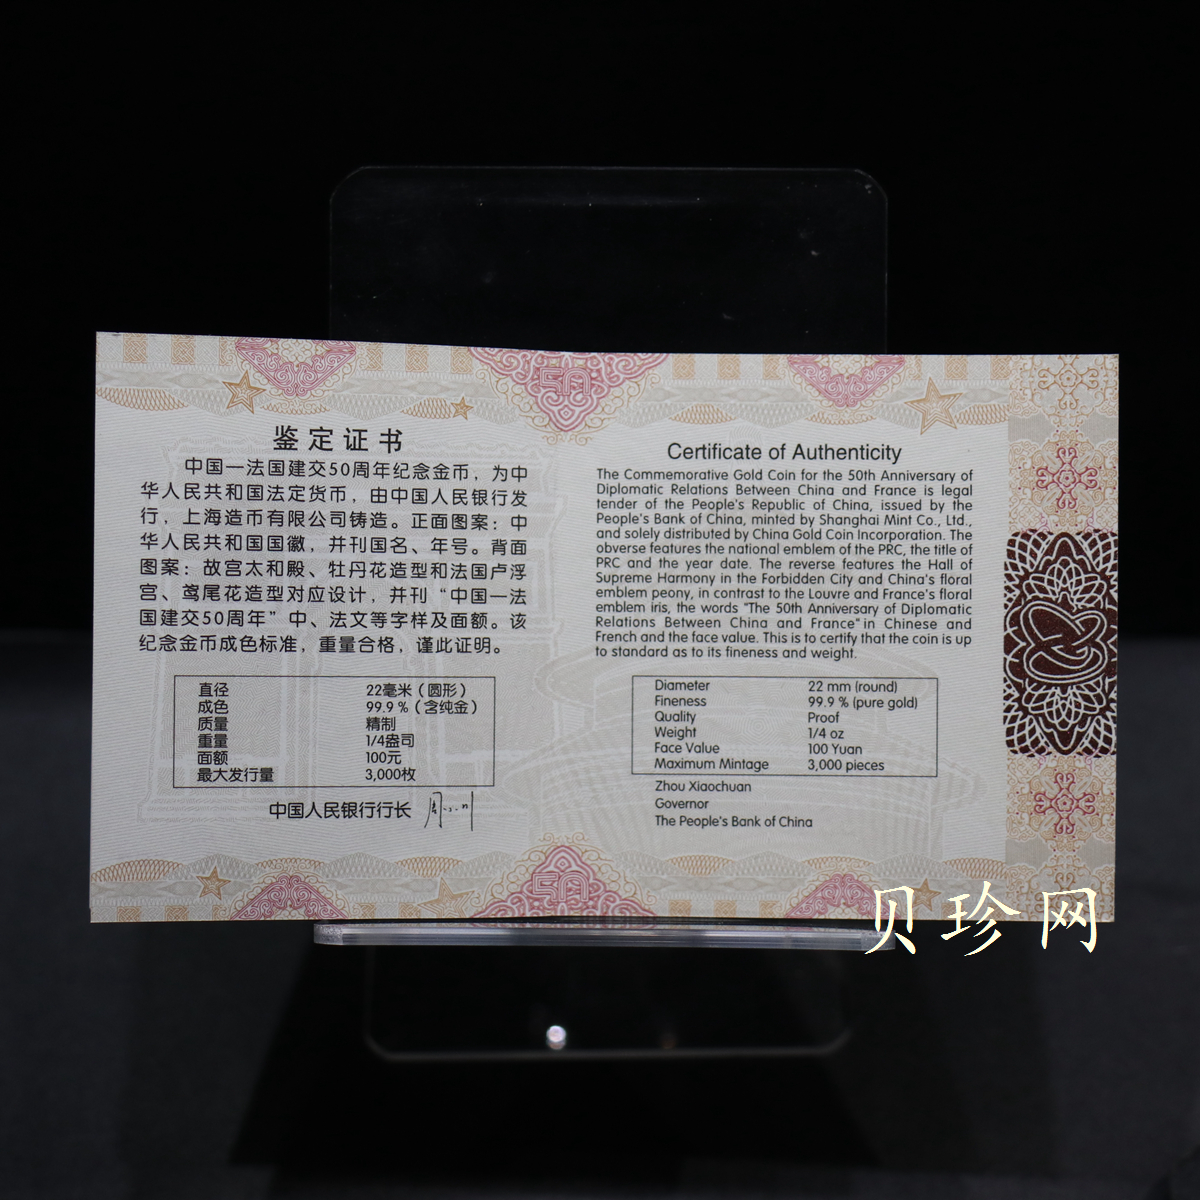 鉴定证书
中国一法国建交50周年纪念金币，为中
华人民共和国法定货币，由中国人民银行发
行，上海造币有限公司铸造。正面图案：中
华人民共和国国徽，并刊国名、年号。背面
图案：故宫太和殿、牡丹花造型和法国卢浮
宫、鸢尾花造型对应设计，并刊“中国一法
国建交50周年”中、法文等字样及面额。该
纪念金币成色标准，重量合格，谨此证明。
直径 22毫米（圆形）
成色 99.9％（含纯金）
质量 精制
重量 1/4盎司
面额 100元
最大发行量 3,000枚
中国人民银行行长
Certificate of Authenticity
The Commemorative Gold Coin for the 50th Anniversary of
Diplomatic Relations Between China and France is legal
tender of the People's Republic of China, issued by the
People's Bank of China, minted by Shanghai Mint Co., Ltd.,
and solely distributed by China Gold Coin Incorporation. The
obverse features the national emblem of the PRC, the title of
PRC and the year date. The reverse features the Hall of
Supreme Harmony in the Forbidden City and China's floral
emblem peony, in contrast to the Louvre and France's floral
emblem iris, the words "The 50th Anniversary of Diplomatic
Relations Between China and France" in Chinese and
French and the face value. This is to certify that the coin is up
to standard as to its fineness and weight.
Diameter 22 mm (round)
Fineness 99.9 % (pure gold)
Quality Proof
Weight 1/4 oz
Face Value 100 Yuan
Maximum Mintage 3,000 pieces
Zhou Xiaochuan
Governor
The People's Bank of China
50
50
贝珍网